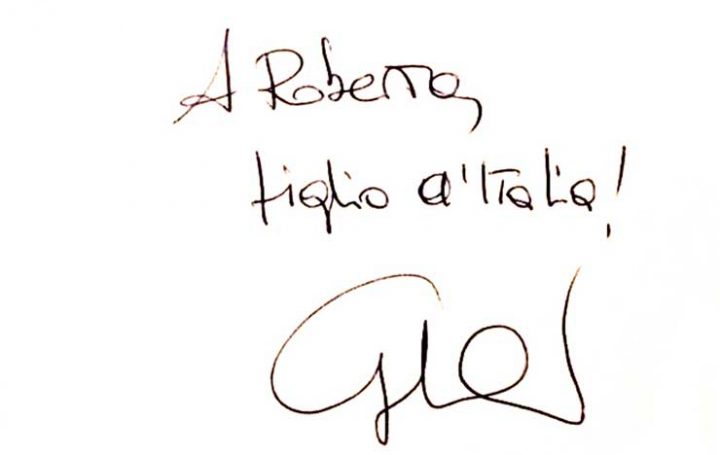 A Roberto,
figlio d'Italia!